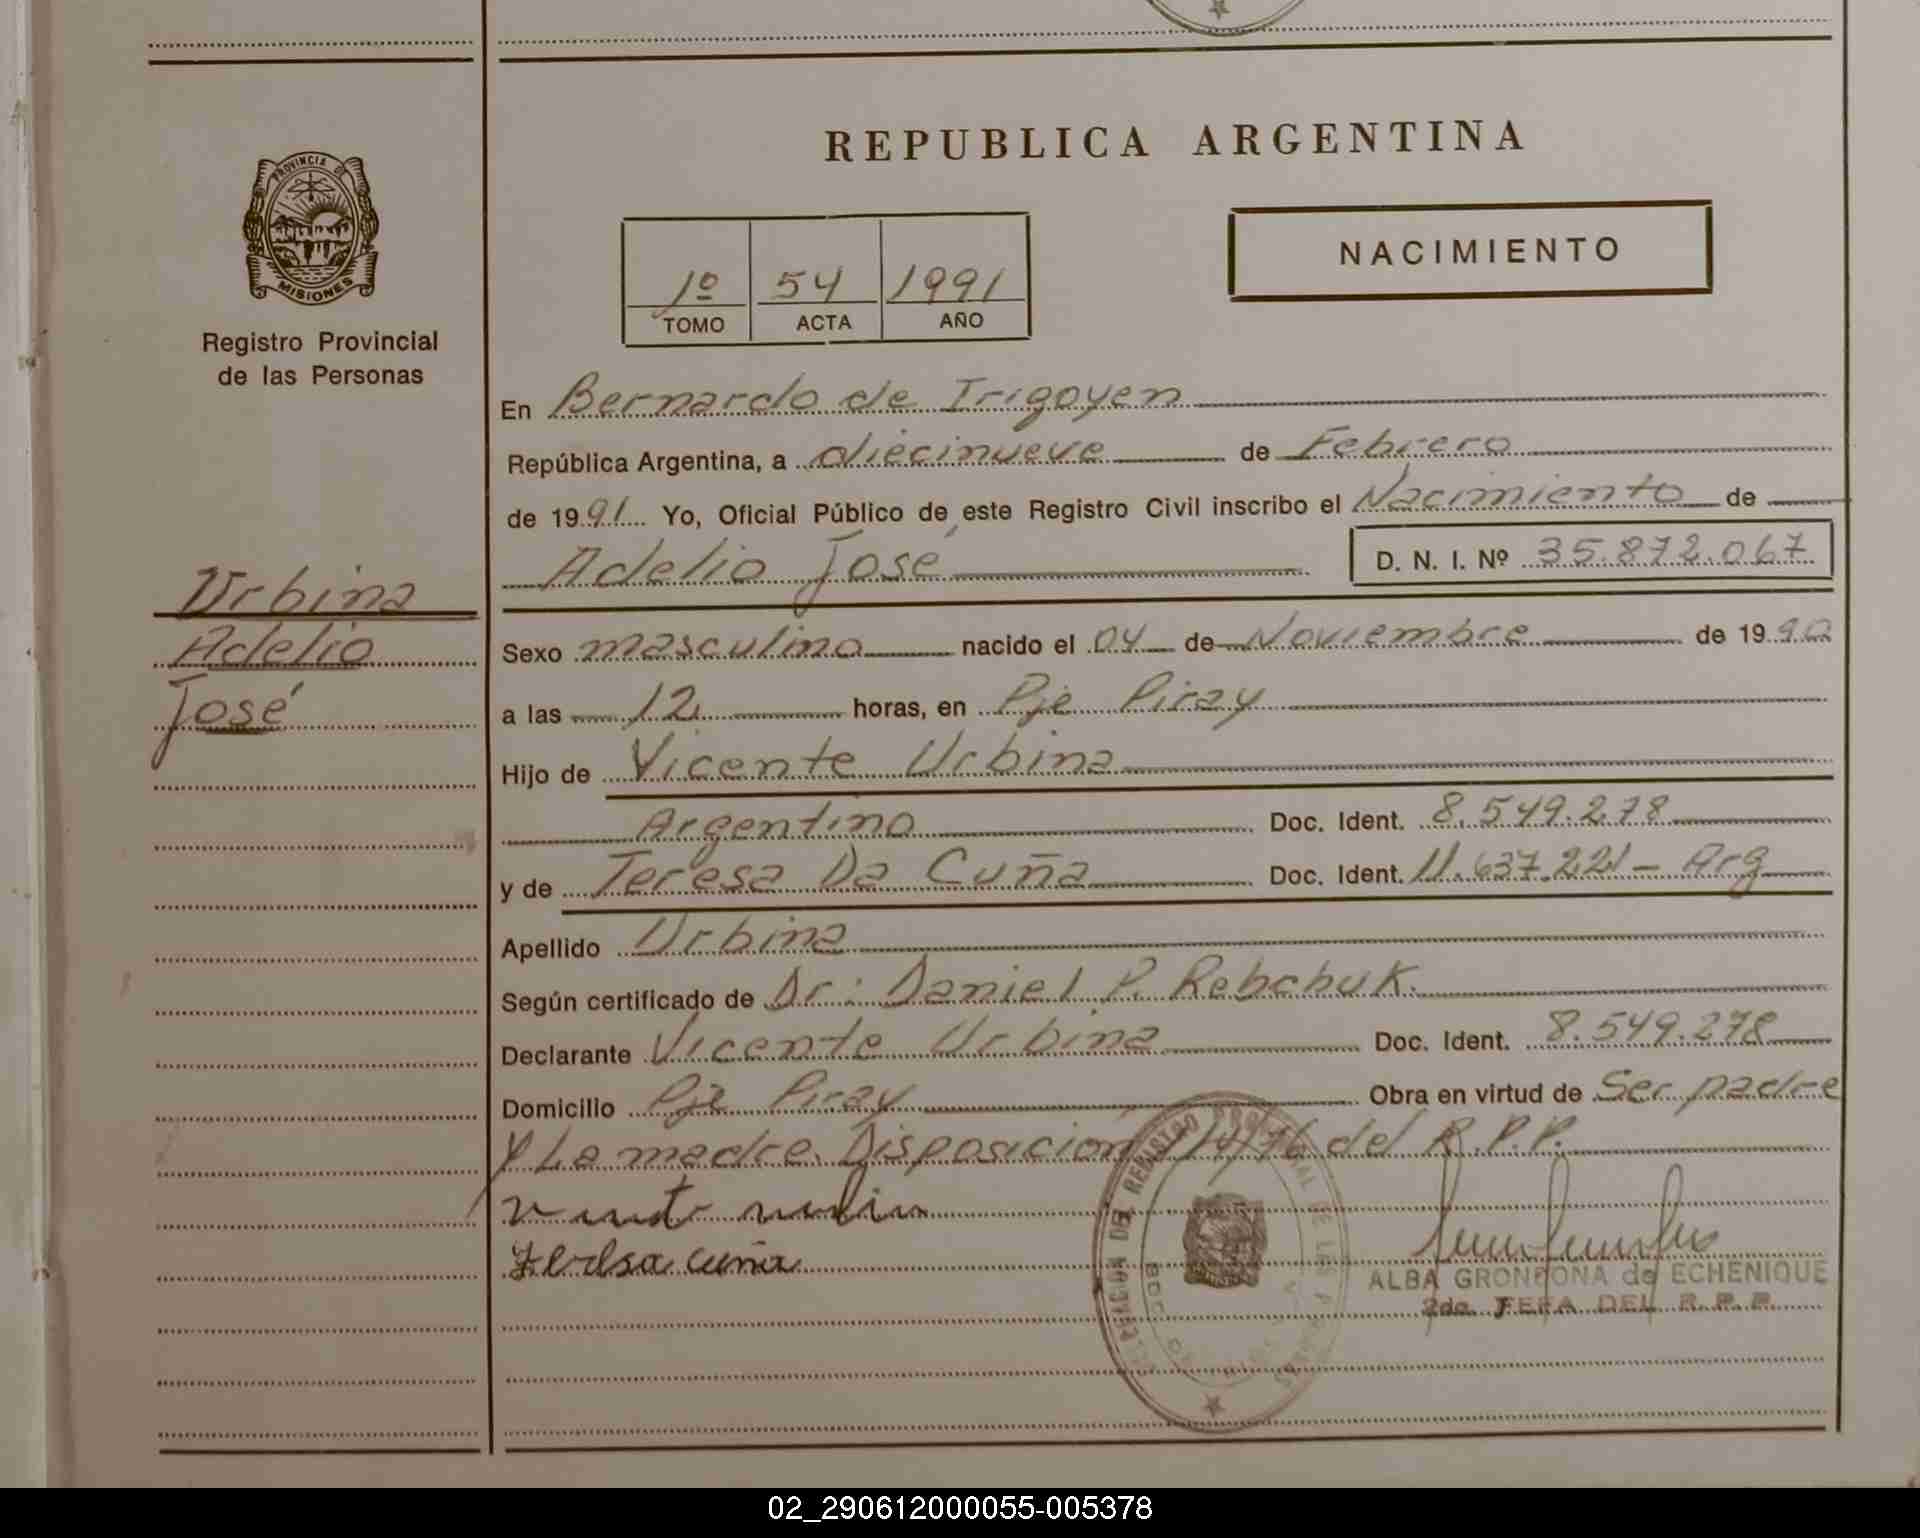 REPUBLICA ARGENTINA
PROVINCIA DE
MISIONES
Registro Provincial
de las Personas
NACIMIENTO
1º 54 1991
TOMO ACTA AÑO
En Bernardo de Irigoyen
República Argentina, a diecinueve de Febrero
de 1991 Yo, Oficial Público de este Registro Civil inscribo el Nacimiento de
Adelio José D. N. I. Nº 35.872.067
Urbina
Adelio
José
Sexo masculino nacido el 04 de Noviembre de 1990
a las 12 horas, en Pje Piray
Hijo de Vicente Urbina
Argentino Doc. Ident. 8.549.278
y de Teresa Da Cuña Doc. Ident. 11.637.221 - Arg
Apellido Urbina
Según certificado de Dr: Daniel P. Rebchuk.
Declarante Vicente Urbina Doc. Ident. 8.549.278
Domicilio Pje Piray Obra en virtud de Ser padre
y La madre. Disposición 114/76 del R.P.P.
cuña
ALBA GRONDONA de ECHENIQUE
2da. JEFA DEL R.P.P.
02_290612000055-005378